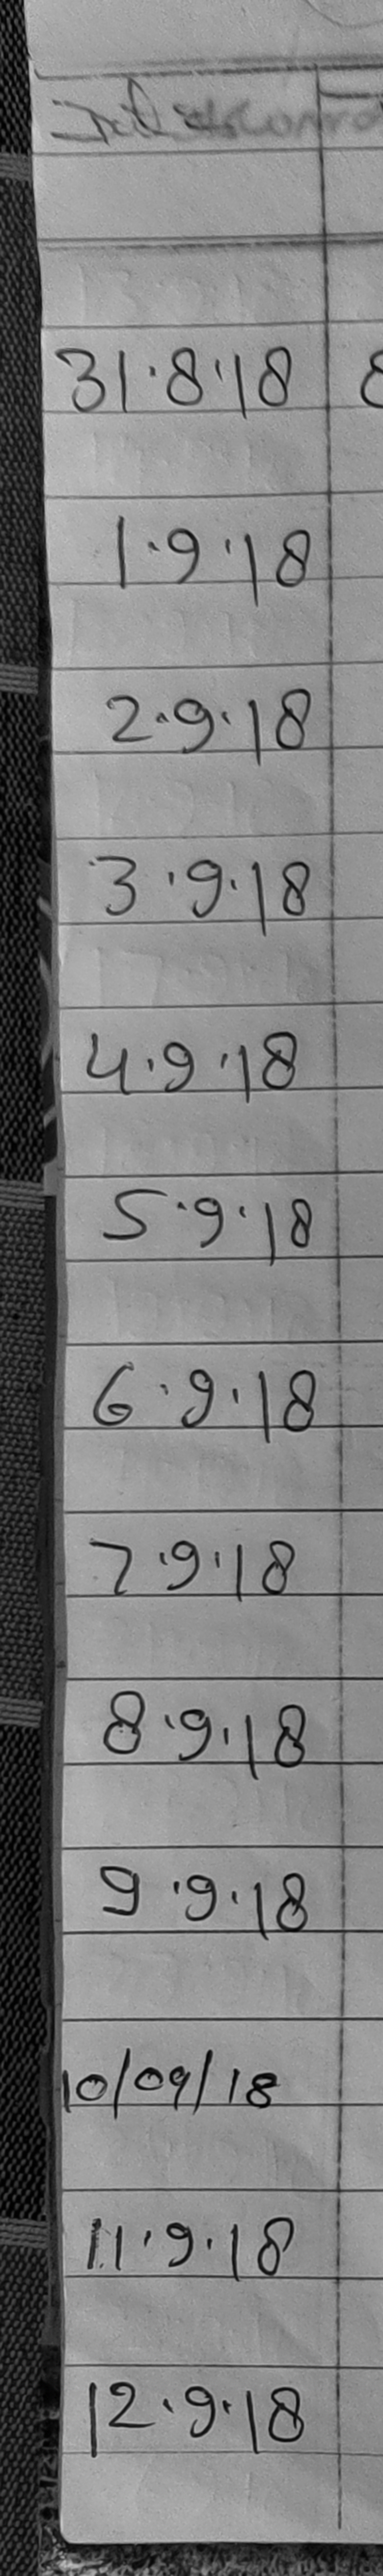 31.8.18 8
1.9.18
2.9.18
3.9.18
4.9.18
5.9.18
6.9.18
7.9.18
8.9.18
9.9.18
10/09/18
11.9.18
12.9.18